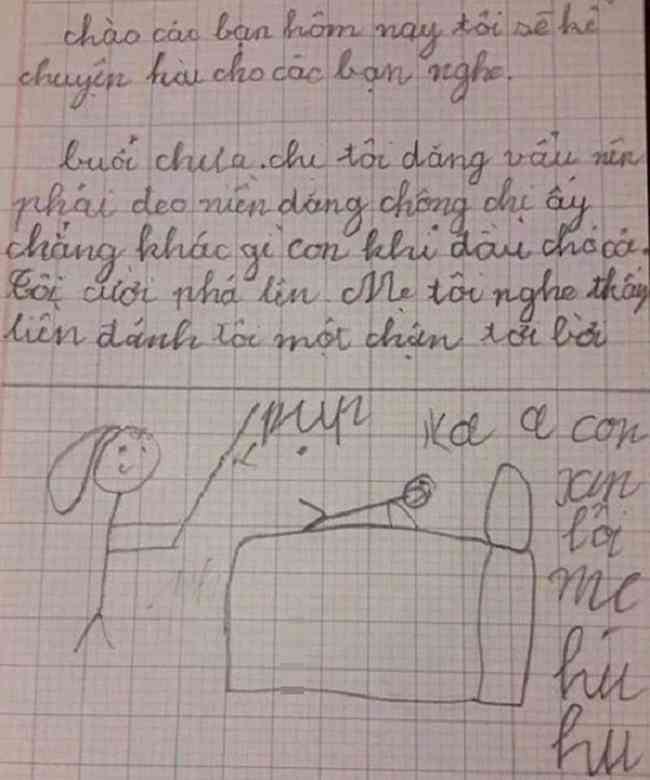 chào các bạn hôm nay tôi sẽ kể
chuyện hài cho các bạn nghe.
buổi chưa. chị tôi dăng vẩu nên
phải deo niền dăng chông chị ấy
chẳng khác gì con khỉ dầu chó cả.
Tôi cười phá lên Mẹ tôi nghe thấy
liền dánh tôi một chận tơi bời
pụp
Ka a con
xin
lỗi
mẹ
hu
hu